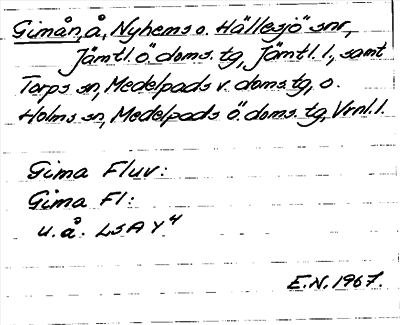 Gimån, å, Nyhems o. Hällesjö snr,
Jämtl. ö. doms. tg, Jämtl. l., samt
Torps sn, Medelpads v. doms. tg, o.
Holms sn, Medelpads ö. doms. tg, Vrnl. l.
Gima Fluv:
Gima Fl:
u. å. LSA Y 4
E.N. 1967.